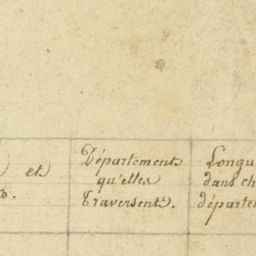 et
Départements
qu'elles
traversent.
Longu
dans ch
départe